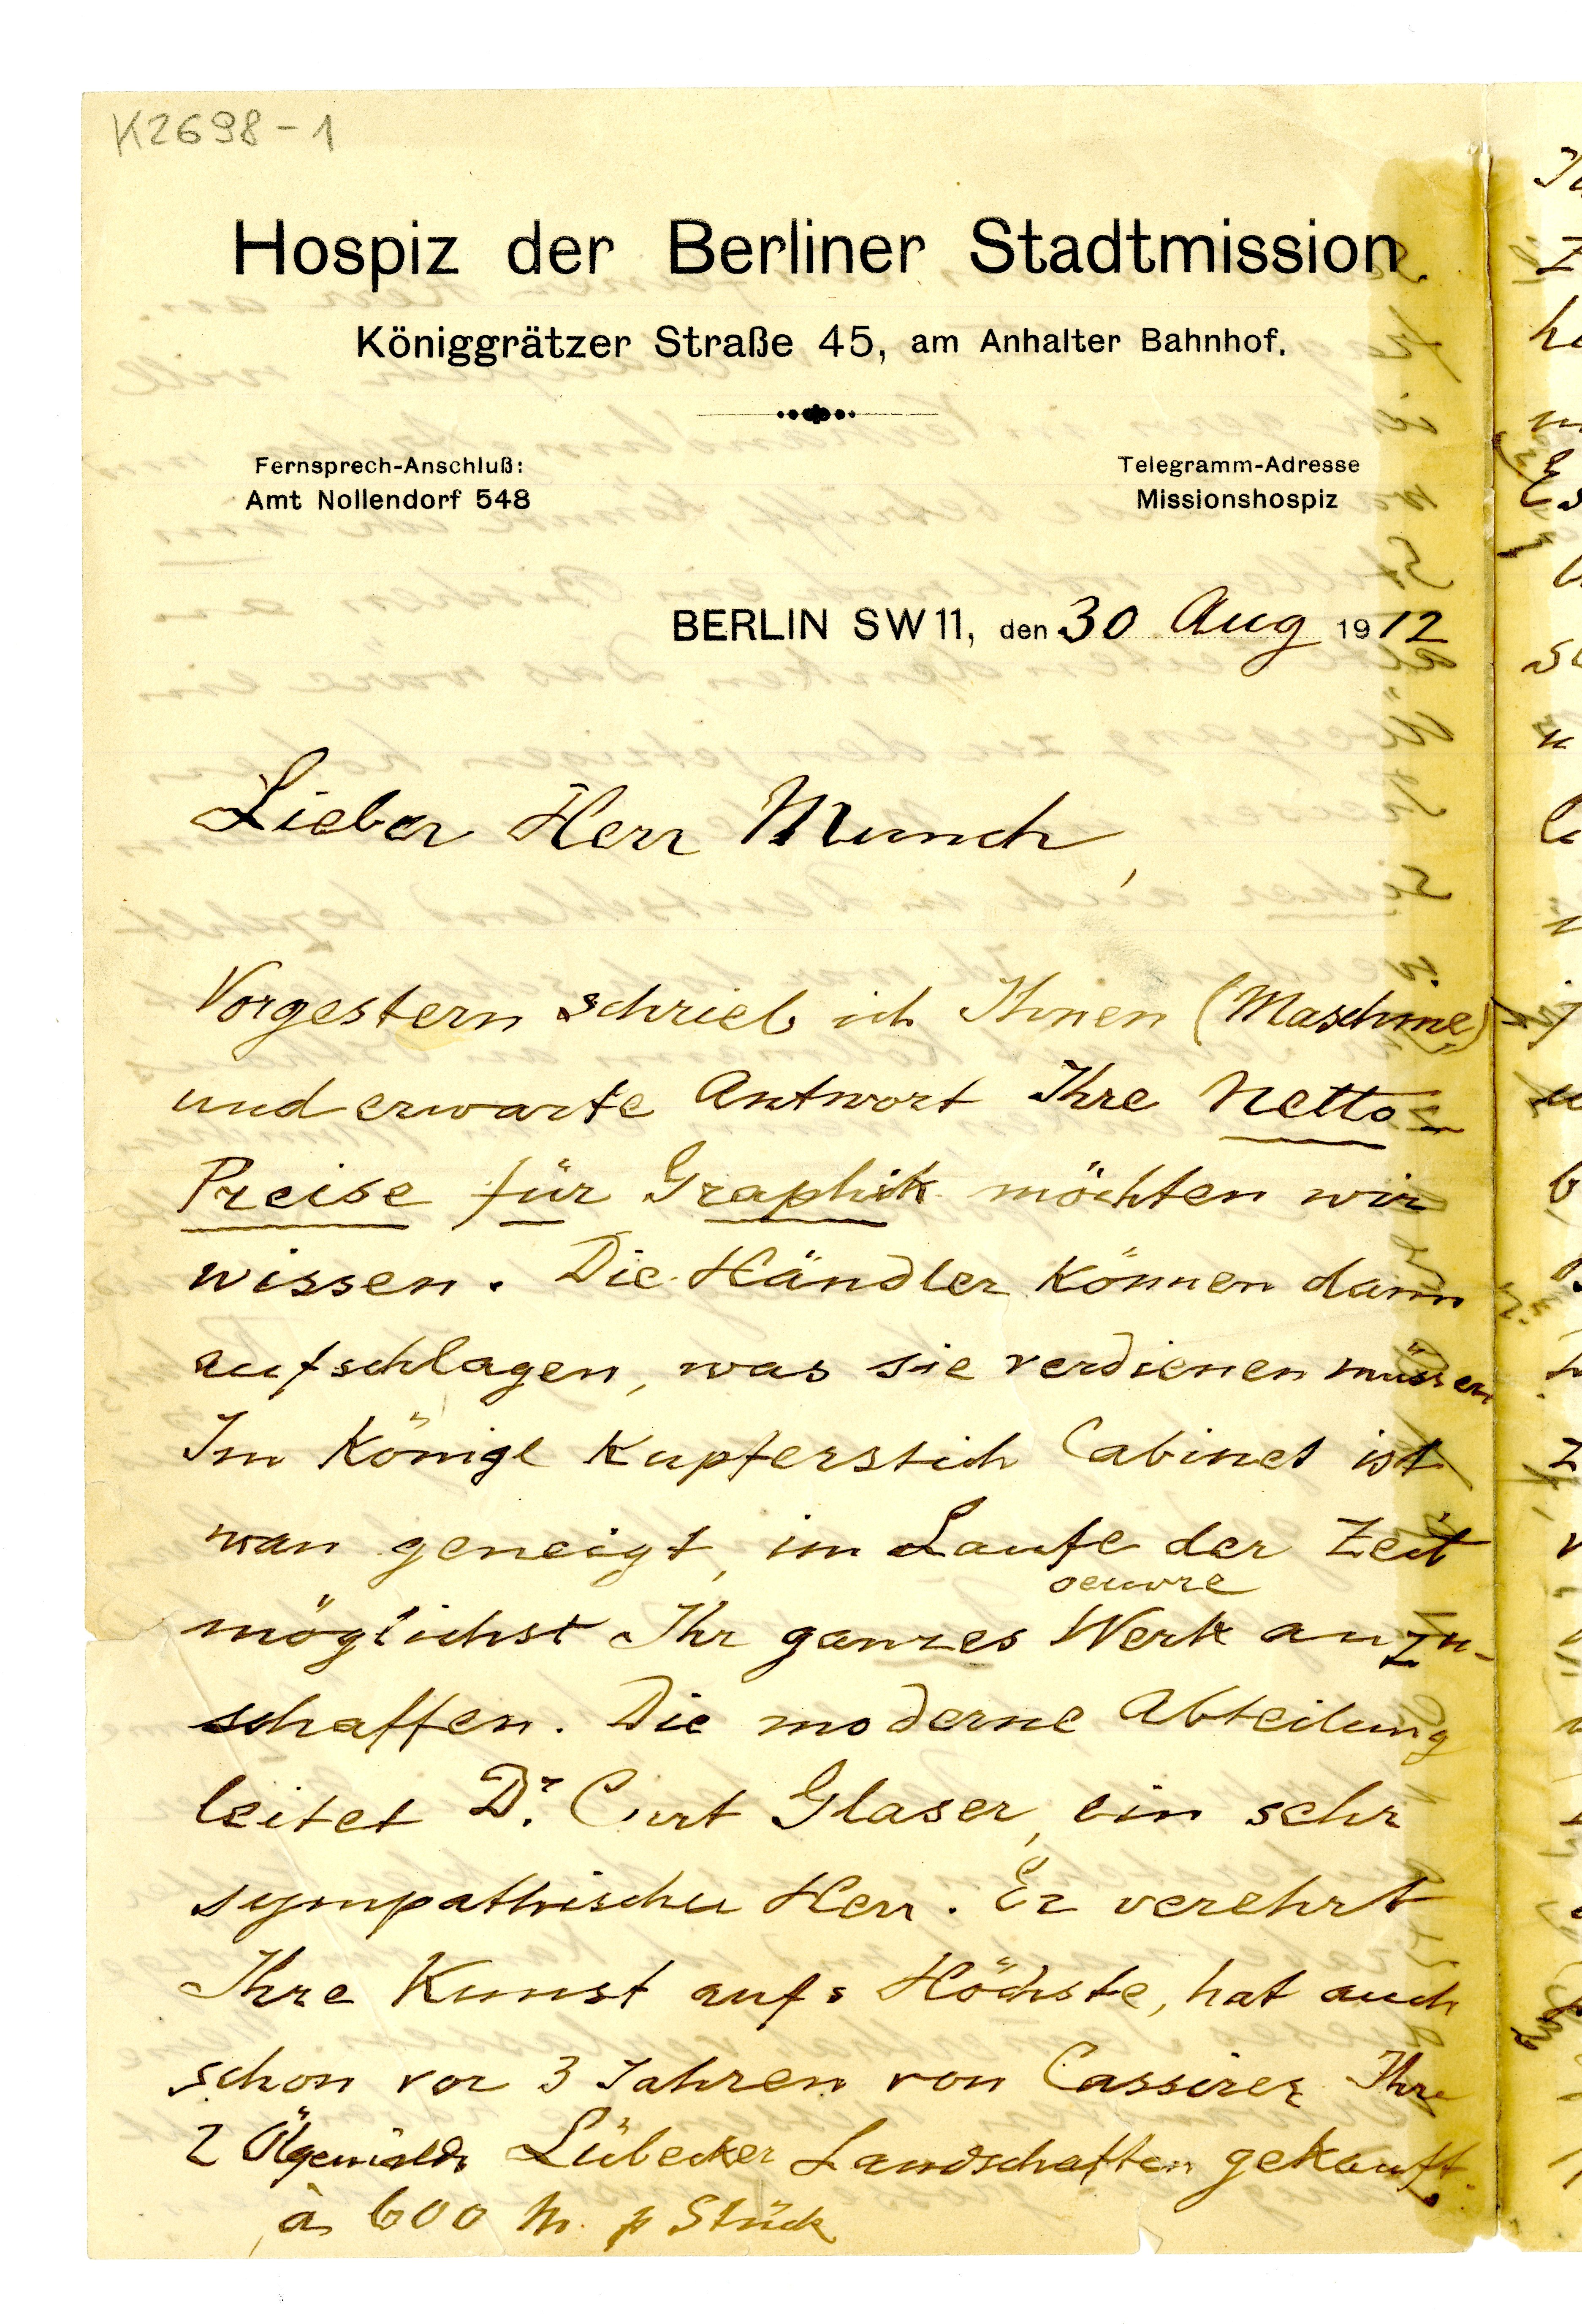 K2698-1
Hospiz der Berliner Stadtmission.
Königgrätzer Straße 45, am Anhalter Bahnhof.
Fernsprech-Anschluß:
Amt Nollendorf 548
Telegramm-Adresse
Missionshospiz
BERLIN SW 11, den 30 Aug 1912
Lieber Herr Munch,
Vorgestern schrieb ich Ihnen (Maschine)
und erwarte Antwort Ihre Netto-
Preise für Graphik möchten wir
wissen. Die Händler können dann
aufschlagen, was sie verdienen müssen
Im Königl Kupferstich Cabinet ist
man geneigt, im Laufe der Zeit
oeuvre
möglichst Ihr ganzes Werk anzu-
schaffen. Die moderne Abteilung
leitet Dr. Curt Glaser, ein sehr
sympathischer Herr. Er verehrt
Ihre Kunst aufs Höchste, hat auch
schon vor 3 Jahren von Cassirer Ihre
2 Ölgemälde Lübecker Landschaften gekauft.
à 600 M. p Stück